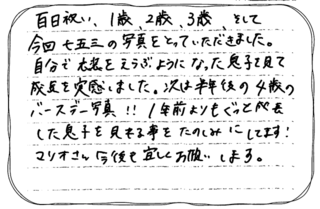 百日祝い、1歳、2歳、3歳、そして
今回七五三の写真をとっていただきました。
自分で衣装をえらぶようになった息子を見て
成長を実感しました。次は半年後の4歳の
バースデー写真!!1年前よりもぐっと成長
した息子を見れる事をたのしみにしてます!
マリオさん今後も宜しくお願いします。